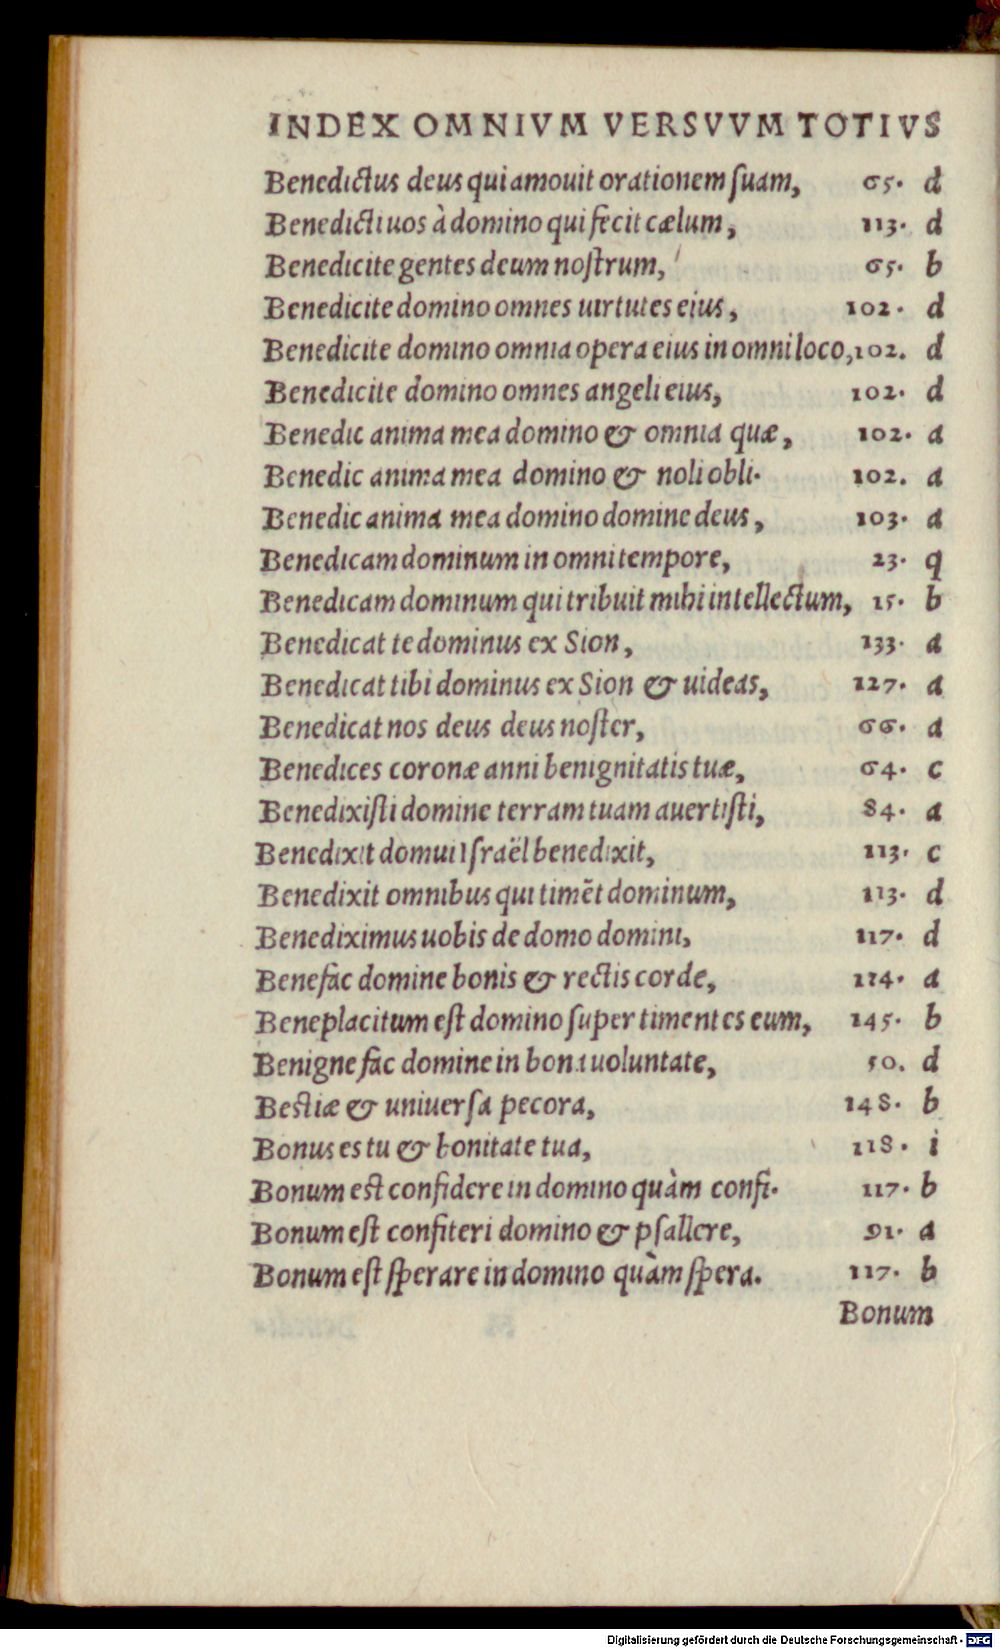 INDEX OMNIVM VERSVVM TOTIVS
Benedictus deus qui amouit orationem ſuam, 65. d
Benedicti uos à domino qui fecit cælum, 113. d
Benedicite gentes deum noſtrum, 65. b
Benedicite domino omnes uirtutes eius, 102. d
Benedicite domino omnia opera eius in omni loco, 102. d
Benedicite domino omnes angeli eius, 102. d
Benedic anima mea domino & omnia quæ, 102. a
Benedic anima mea domino & noli obli. 102. a
Benedic anima mea domino domine deus, 103. a
Benedicam dominum in omni tempore, 23. q
Benedicam dominum qui tribuit mihi intellectum, 15. b
Benedicat te dominus ex Sion, 133. a
Benedicat tibi dominus ex Sion & uideas, 127. a
Benedicat nos deus deus noſter, 66. a
Benedices coronæ anni benignitatis tuæ, 64. c
Benedixiſti domine terram tuam auertiſti, 84. a
Benedixit domui Iſraël benedixit, 113. c
Benedixit omnibus qui timẽt dominum, 113. d
Benediximus uobis de domo domini, 117. d
Benefac domine bonis & rectis corde, 124. a
Beneplacitum eſt domino ſuper timentes eum, 145. b
Benigne fac domine in bona uoluntate, 50. d
Beſtiæ & uniuerſa pecora, 148. b
Bonus es tu & bonitate tua, 118. i
Bonum eſt confidere in domino quàm confi. 117. b
Bonum eſt confiteri domino & pſallere, 91. a
Bonum eſt ſperare in domino quàm ſpera. 117. b
Bonum
Digitalisierung gefördert durch die Deutsche Forschungsgemeinschaft - DFG